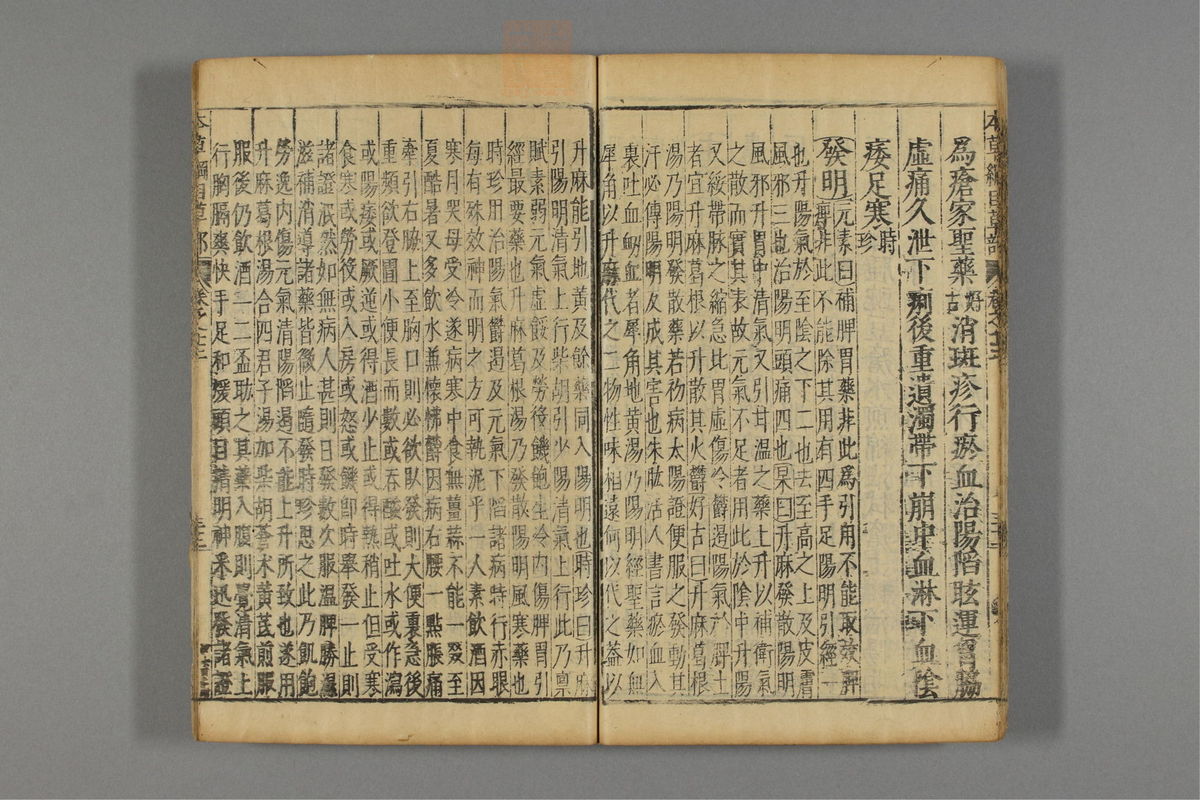 為瘡家聖藥好古消斑疹行瘀血治陽陷眩運胷脇
虛痛久泄下痢後重遺濁帶下崩中血淋下血陰
痿足寒時珍
發明元素曰補脾胃藥非此為引用不能取效脾
痺非此不能除其用有四手足陽明引經一
也升陽氣於至陰之下二也去至高之上及皮膚
風邪三也治陽明頭痛四也杲曰升麻發散陽明
風邪升胃中清氣又引甘溫之藥上升以補衛氣
之散而實其表故元氣不足者用此於陰中升陽
又緩帶脈之縮急此胃虛傷冷鬱遏陽氣於脾土
者宜升麻葛根以升散其火鬱好古曰升麻葛根
湯乃陽明發散藥若初病太陽證便服之發動其
汗必傳陽明反成其害也朱肱活人書言瘀血入
裏吐血衄血者犀角地黃湯乃陽明經聖藥如無
犀角以升麻代之二物性味相遠何以代之蓋以
升麻能引地黃及餘藥同入陽明也時珍曰升麻
引陽明清氣上行柴胡引少陽清氣上行此乃稟
賦素弱元氣虛餒及勞後饑飽生冷內傷脾胃引
經最要藥也升麻葛根湯乃發散陽明風寒藥也
時珍用治陽氣鬱遏及元氣下陷諸病時行赤眼
每有殊效神而明之方可執泥乎一人素飲酒因
寒月哭母受冷遂病寒中食無薑蒜不能一啜至
夏酷暑又多飲水兼懷怫鬱因病右腰一點脹痛
牽引右脇上至胸口則必欲臥發則大便裏急後
重頻欲登圊小便長而數或吞酸或吐水或作瀉
或陽痿或厥逆或得酒少止或得熱稍止但受寒
食寒或勞後或入房或怒或饑即時舉發一止則
諸證泯然如無病人甚則日發數次服溫脾勝濕
滋補消導諸藥皆微止隨發時珍思之此乃飢飽
勞逸內傷元氣清陽陷遏不能上升所致也遂用
升麻葛根湯合四君子湯加柴胡蒼朮黃芪煎服
服後仍飲酒一二盃助之其藥入腹則覺清氣上
行胸膈爽快手足和煖頭目精明神采迅發諸證